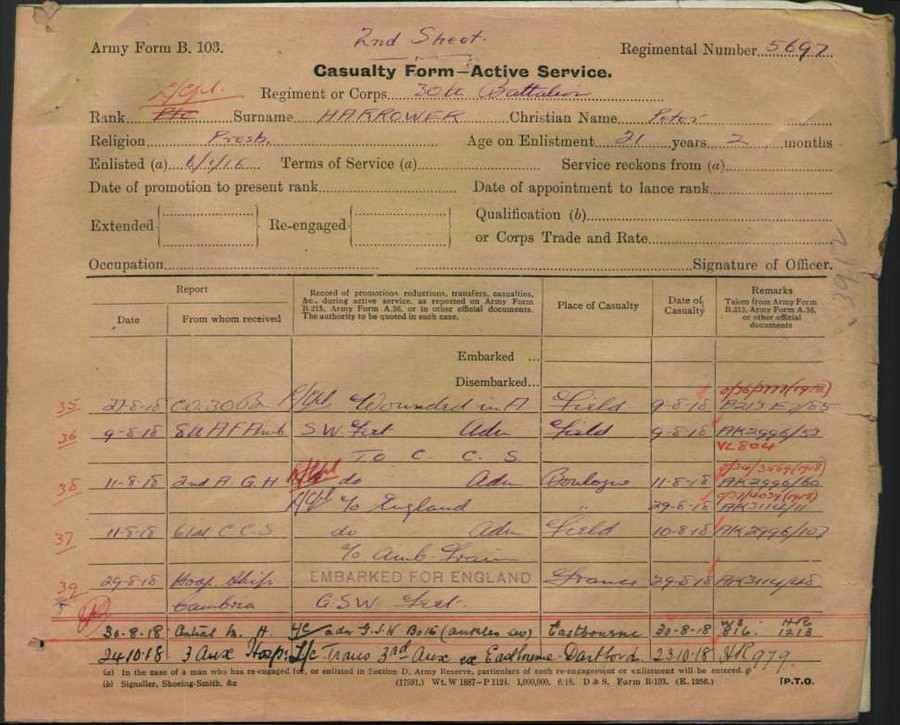 2nd Sheet.
Army Form B. 103.
Regimental Number 5697
Casualty Form—Active Service.
L/Cpl.
Regiment or Corps 30th Battalion
Rank Pte Surname HARROWER Christian Name Peter
Religion Presb. Age on Enlistment 21 years 2 months
Enlisted (a) 6/1/16 Terms of Service (a) Service reckons from (a)
Date of promotion to present rank Date of appointment to lance rank
Extended Re-engaged Qualification (b)
or Corps Trade and Rate
Occupation Signature of Officer.
3912
Report Record of promotions reductions, transfers, casualties, &c., during active service, as reported on Army Form B.213, Army Form A.36, or in other official documents. The authority to be quoted in each case. Place of Casualty Date of Casualty Remarks Taken from Army Form B.213, Army Form A.36, or other official documents
Date From whom received
Embarked ...
Disembarked...
35 27-8-18 CO. 30 Bn L/Cpl Wounded in A Field 9-8-18 B213
36 9-8-18 8th A F Amb S W Feet Adm Field 9-8-18 AK2996/53
VL804
TO C. C. S
38 11-8-18 2nd A. G. H L/Cpl do Adm Boulogne 11-8-18 AK2996/60
L/Cpl to England " 29-8-18 AK3114/11
37 11-8-18 61st C C S do Adm Field 10-8-18 AK2996/107
to Amb. Train
39 29-8-18 Hosp. Ship EMBARKED FOR ENGLAND France 29-8-18 AK3114/48
Cambria GSW Feet.
30-8-18 Central M. H. L/C adm G.S.W Both (ankles sev) Eastbourne 30-8-18 816. 1218
24-10-18 3 Aux Hosp. L/c Trans 3rd Aux ex Eastbourne Dartford 23-10-18 HR979.
(a) In the case of a man who has re-engaged for, or enlisted in Section D, Army Reserve, particulars of such re-engagement or enlistment will be entered.
(b) Signaller, Shoeing-Smith, &c (17591.) Wt. W 1887—P 1124. 1,000,000. 6/18. D & S. Form B/103. (E. 1256.) [P.T.O.